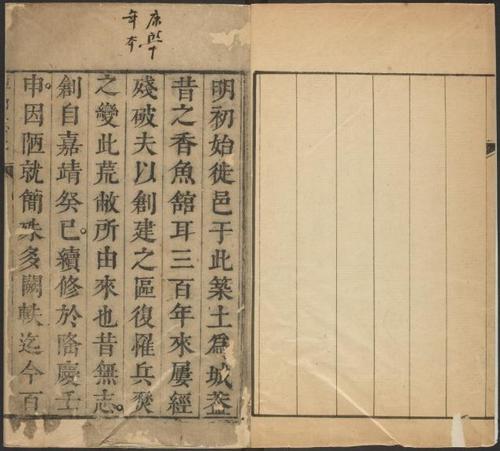 康熙十
年本
明初始徙邑于此築土爲城葢
昔之香魚館耳三百年來屢經
殘破夫以創建之區復罹兵燹
之變此荒敝所由來也昔無志。
創自嘉靖癸巳。續修於隆慶壬
申。因陋就簡殊多闕軼迄今百